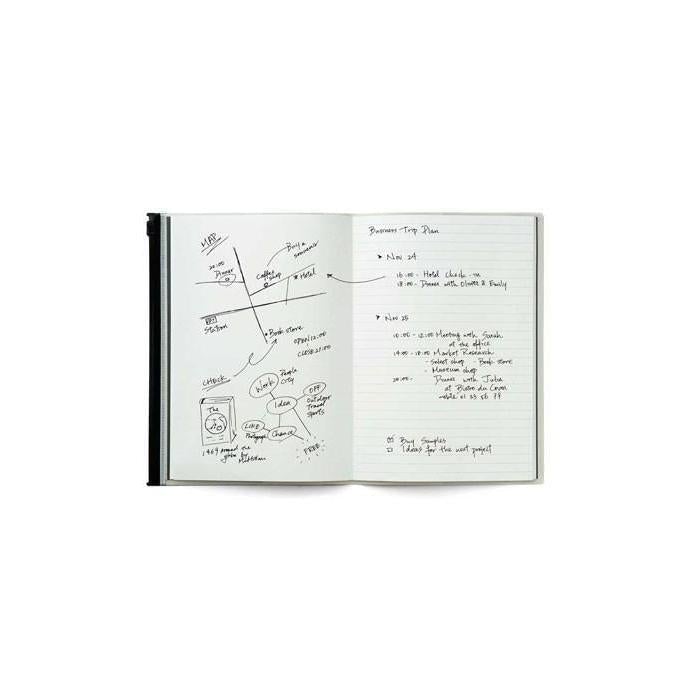 MAP
Buy a
souvenir
20:00
Dinner
Coffee
shop
Hotel
Station
Book store
OPEN 12:00
CLOSE 21:00
CHECK
People
City
Work
OFF
Idea
Outdoor
Travel
Sports
The
LIKE
Chance
FREE
1969 around the
globe by
Business Trip Plan
Nov 24
16:00 - Hotel Check-in
18:00 - Dinner with Oliver & Emily
Nov 25
10:00 - 12:00 Meeting with Sarah
at the office
14:00 - 18:00 Market Research
- Select shop - Book store
- Museum shop
20:00 - Dinner with Julia
at Bistro du
01 23 56 79
Buy Samples
Ideas for the next project